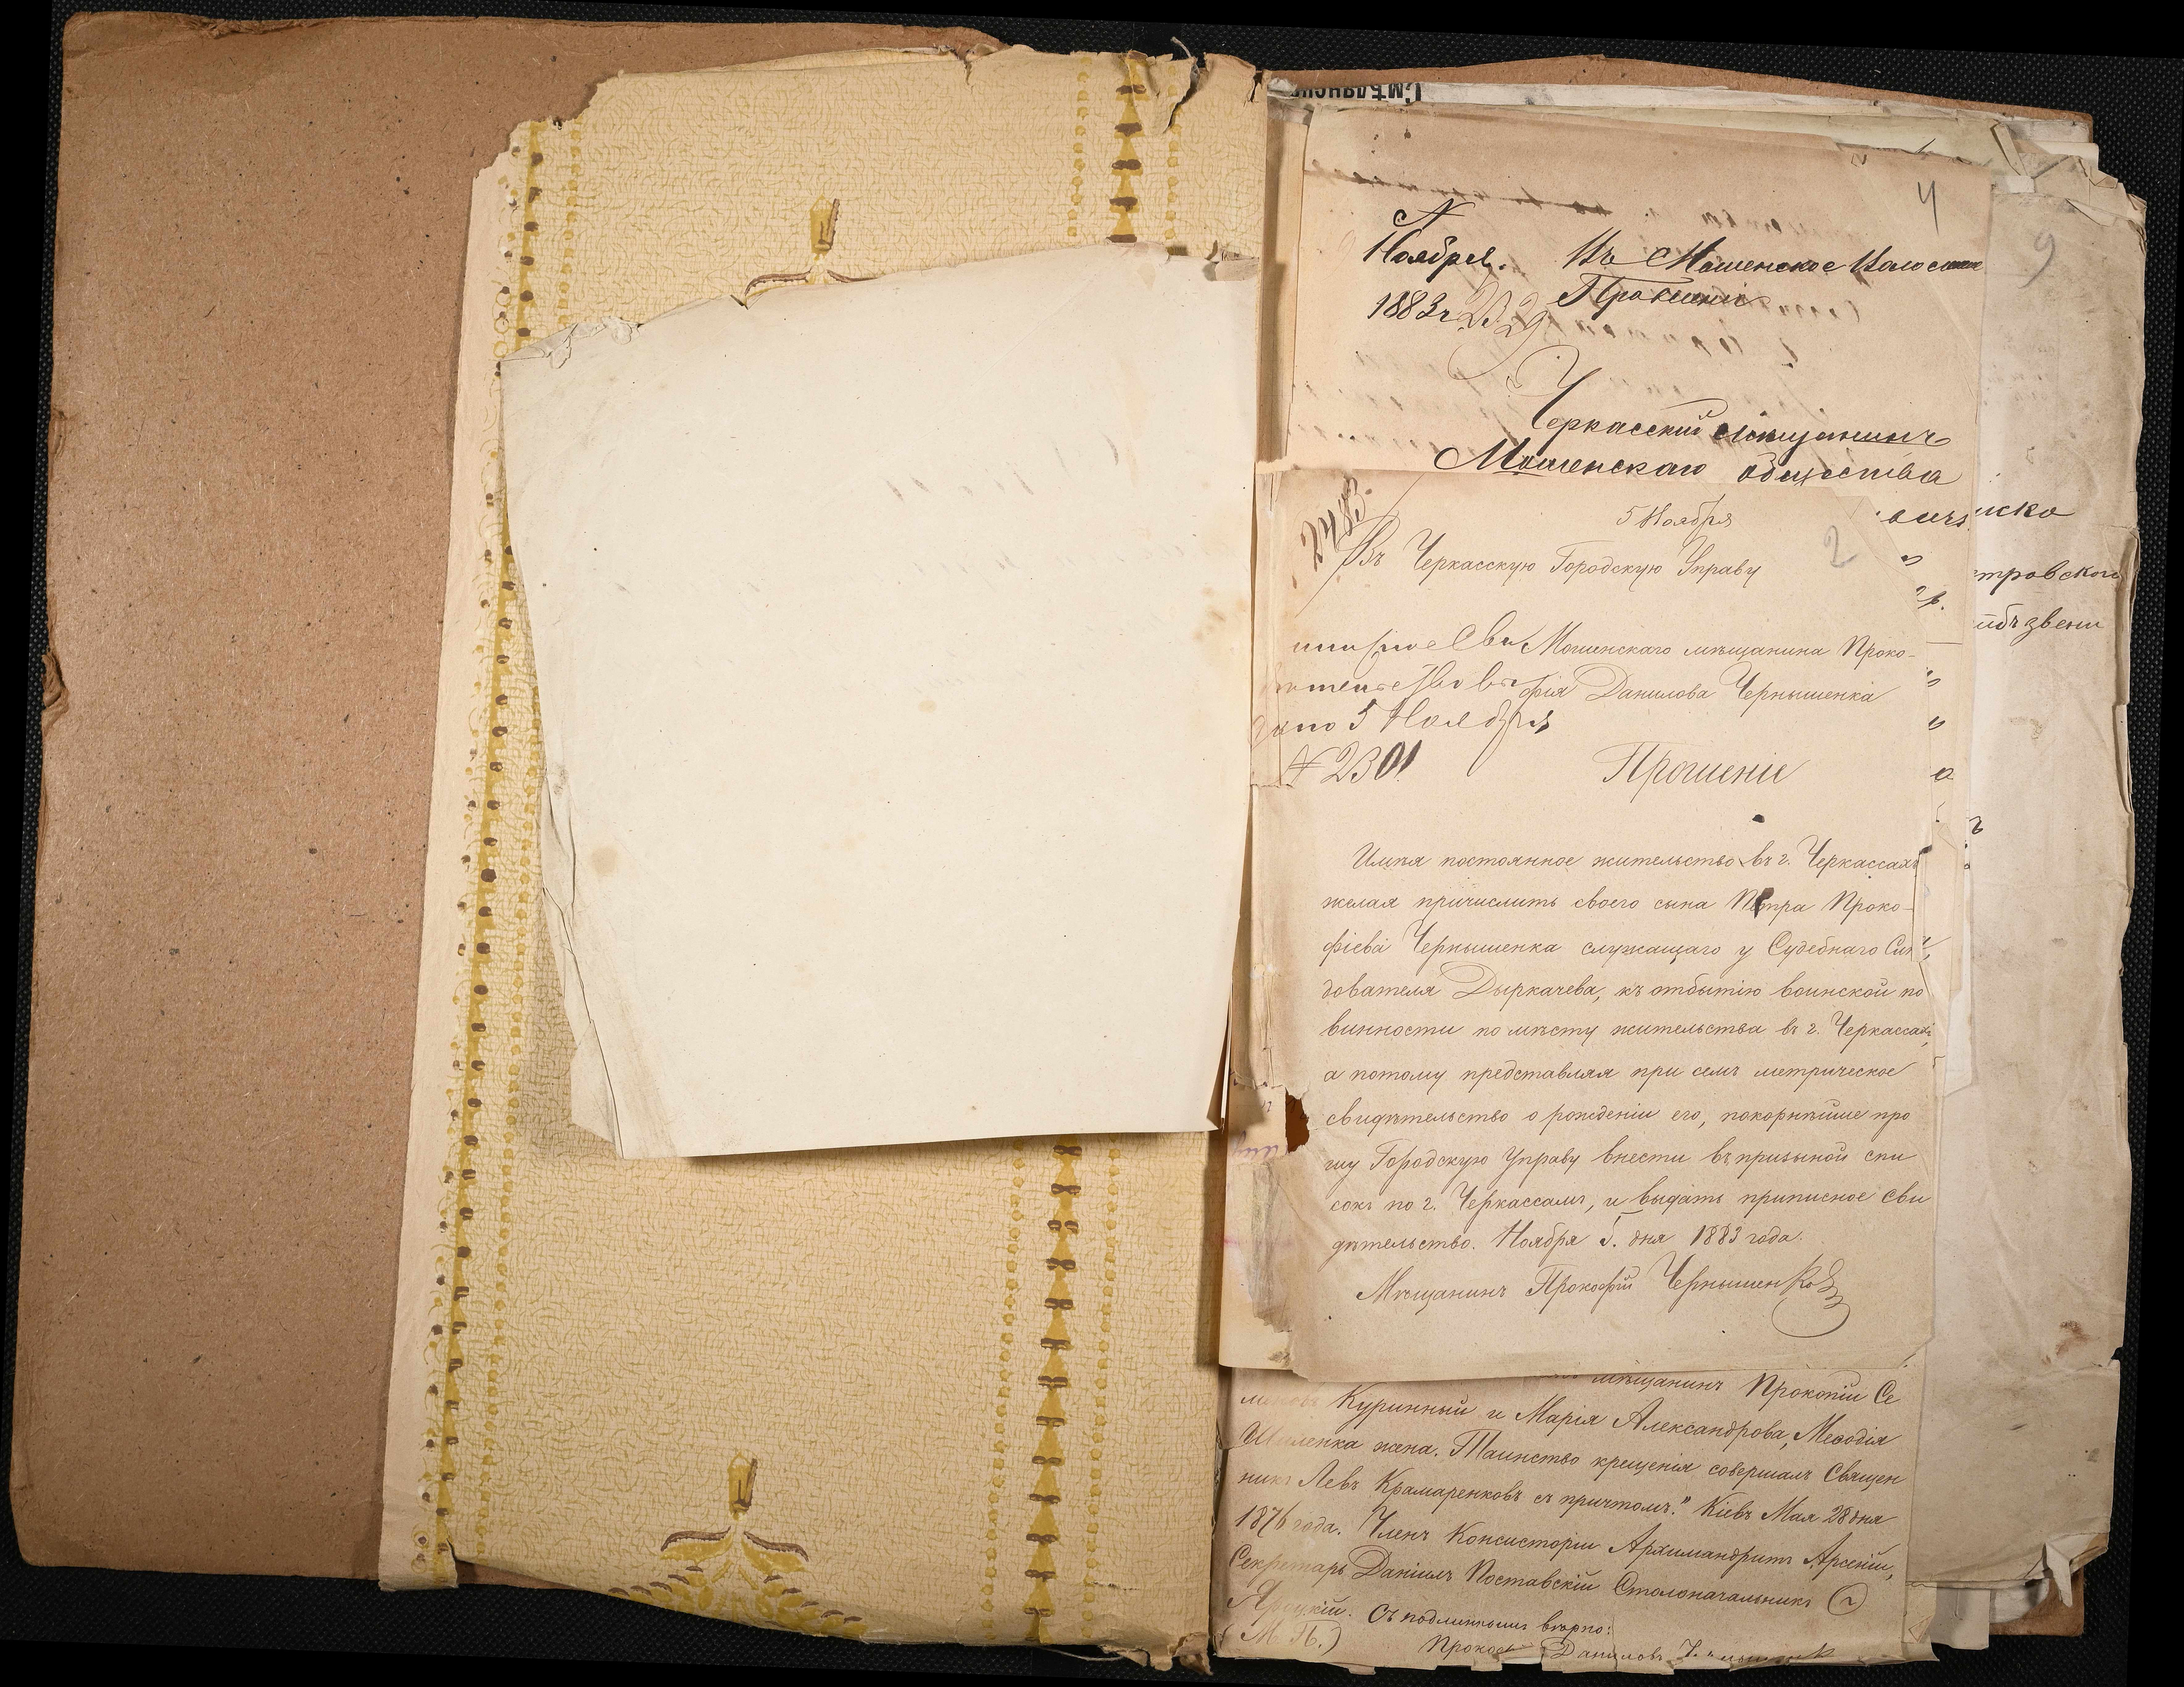 Смѣлянск
4
9
Ноября.
Въ Мошенское Волостное
1883 г 2329
Прошеніе
Черкасскій мѣщанинъ
Мошенскаго общества
2483
5 Ноября
2
иско
Въ Черкасскую Городскую Управу
тровской
звени
Мошенскаго мѣщанина Проко-
фія Данилова Чернышенка
5 Ноября
№ 2301
Прошеніе
Имѣя постоянное жительство въ г. Черкассахъ
желая причислить своего сына Петра Проко-
фіева Чернышенка служащаго у Судебнаго Слѣ
дователя Дыркачева, къ отбытію воинской по
винности по мѣсту жительства въ г. Черкассахъ,
а потому представляя при семъ метрическое
свидѣтельство о рожденіи его, покорнѣйше про
шу Городскую Управу внести въ призыной спи
сокъ по г. Черкассамъ, и выдать приписное сви
дѣтельство. Ноября 5. дня 1883 года.
Мѣщанинъ Прокофій Чернышенко
мѣщанинъ Прокопій Се
Куринный и Марія Александрова, Меѳодія
жена. Таинство крещенія совершалъ Священ
никъ Левъ Крамаренковъ съ причтомъ." Кіевъ Мая 28 дня
1876 года. Членъ Консисторіи Архимандритъ Арсеній,
Секретарь Даніилъ Поставскій Столоначальникъ
Съ подлиннымъ вѣрно:
(М. П.)
Даниловъ